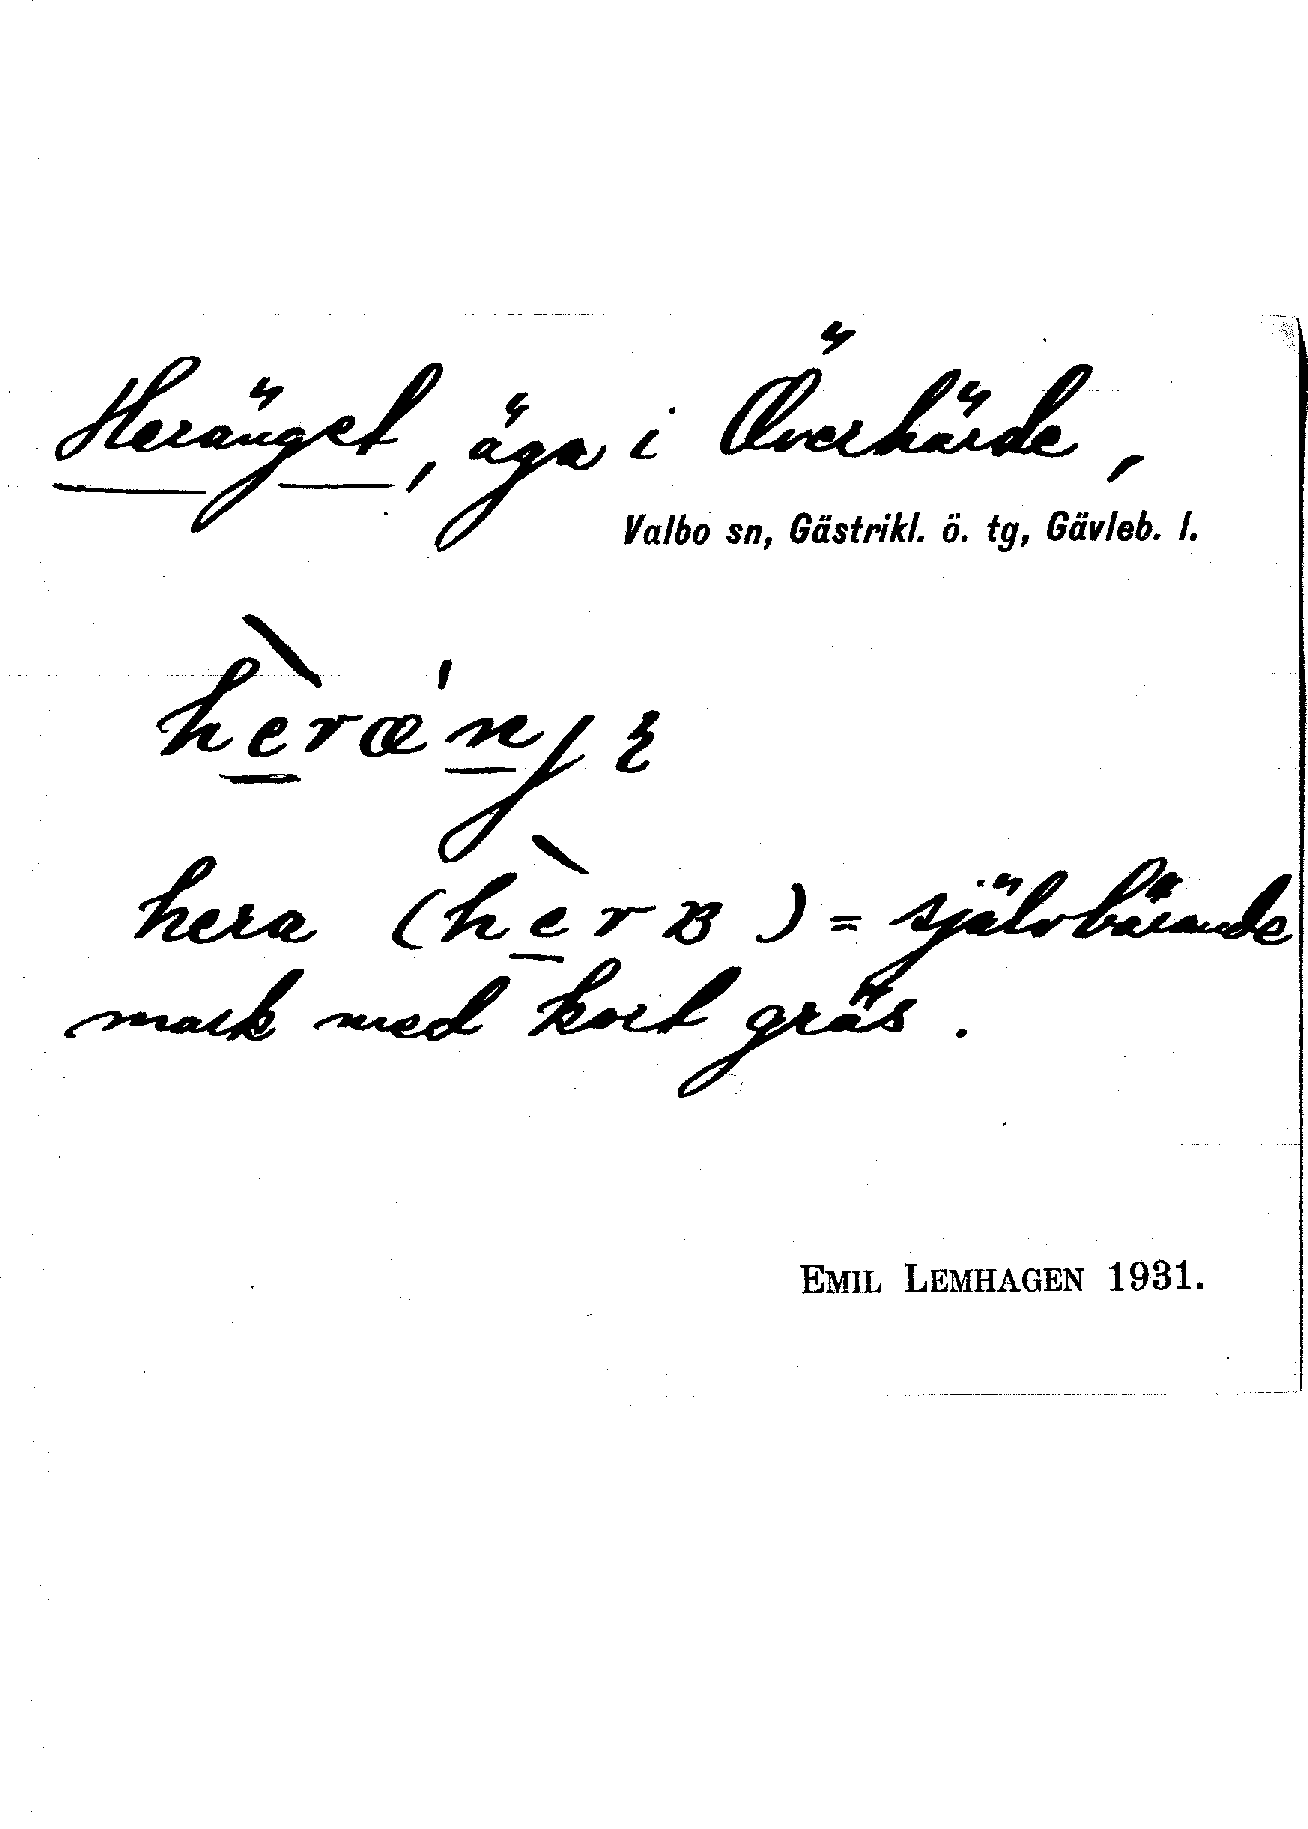 Heränget, äga i Överhärde,
Valbo sn, Gästrikl. ö. tg, Gävleb. l.
hèræ'njɛ
hera (hèrʙ) = självbärande
mark med kort gräs.
EMIL LEMHAGEN 1931.